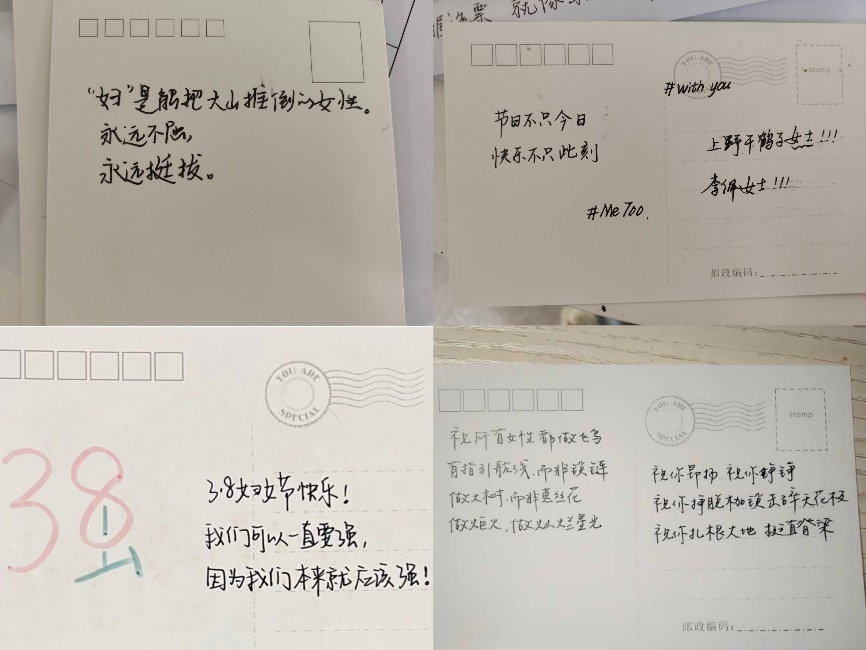 “妇”是能把大山推倒的女性。
永远不屈,
永远挺拔。
就像
YOU ARE
stamp
#with you
节日不只今日
快乐不只此刻
上野千鹤子女士!!!
李佩女士!!!
#Me Too.
邮政编码:
YOU ARE
SPECIAL
38
3.8妇女节快乐!
我们可以一直要强,
因为我们本来就应该强!
YOU ARE
SPECIAL
stamp
祝所有女性都做飞鸟
有指引航线,而非锁链
做大树,而非菟丝花
做炬火,做灿烂星光
祝你昂扬 祝你铮铮
祝你挣脱枷锁击碎天花板
祝你扎根大地 挺直脊梁
邮政编码: